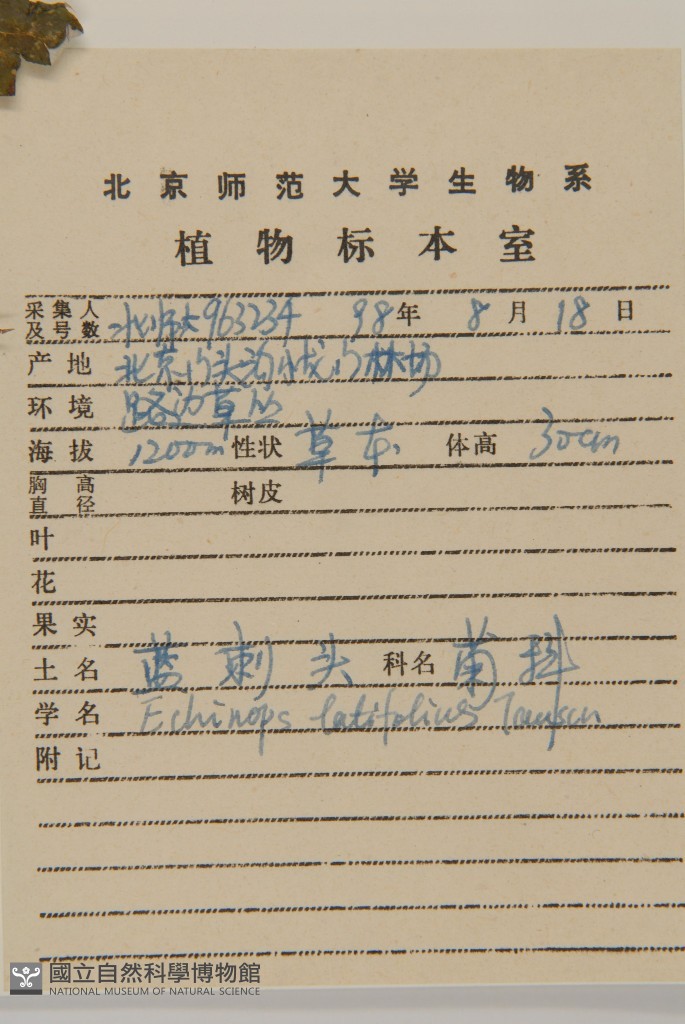 北京师范大学生物系
植物标本室
采集人及号数 北师大963234 98年 8月18日
产地 北京门头沟小龙门林场
环境 路边草丛
海拔 1200m 性状 草本 体高 30cm
胸高直径 树皮
叶
花
果实
土名 蓝刺头 科名 菊科
学名 Echinops latifolius Tausch
附记
國立自然科學博物館
NATIONAL MUSEUM OF NATURAL SCIENCE